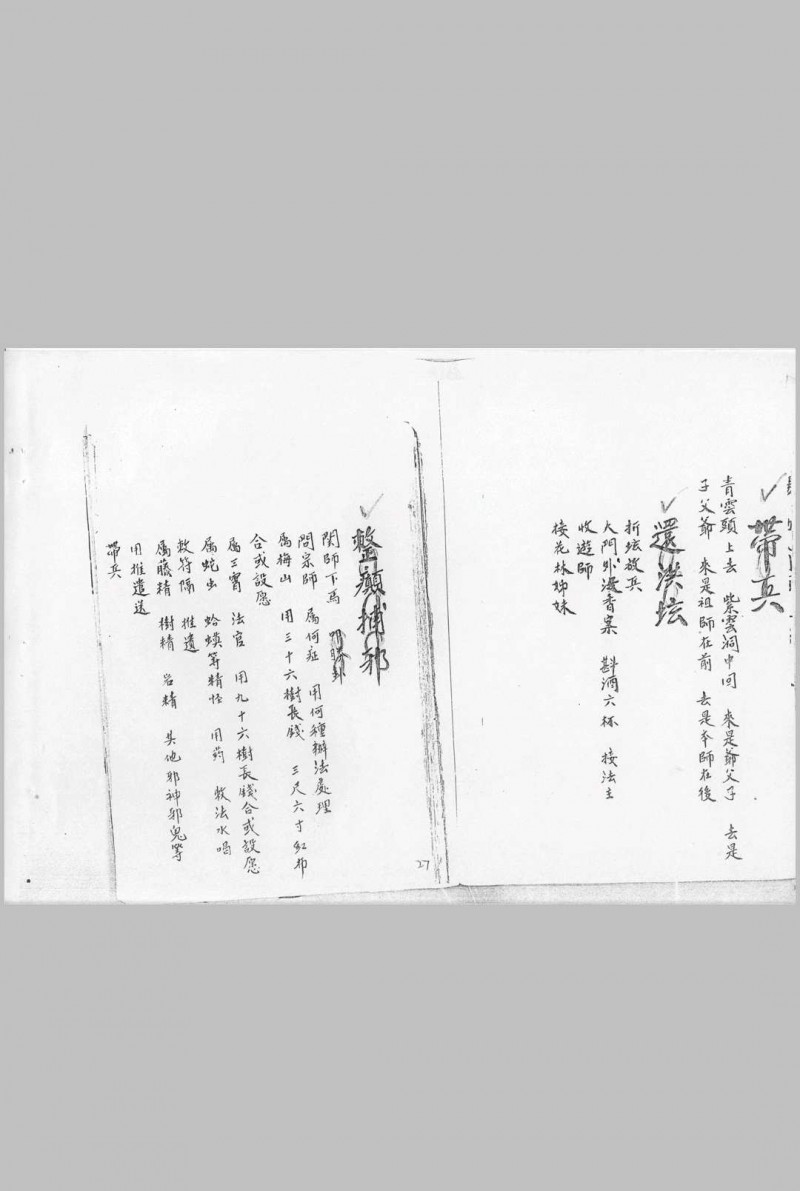 帶兵
青雲頭上去　紫雲洞中回　來是爺父子　去是
子父爺　來是祖師在前　去是本師在後
還洪坛
折坛放兵
大門外漫香案　斟酒六杯　接法主
收遊師
接花林姊妹
整癲捕邪
関師下馬
問宗師　属何症　用何種辦法處理
属梅山　用三十六樹長錢　三尺六寸红布
合或設愿
属三宵　法官　用九十六樹長錢合或設愿
属蛇虫　蛤蟆等精怪　用药　敕法水喝
敕符隔　推遣
属藤精　樹精　岩精　其他邪神邪鬼等
用推遣送
帶兵
27